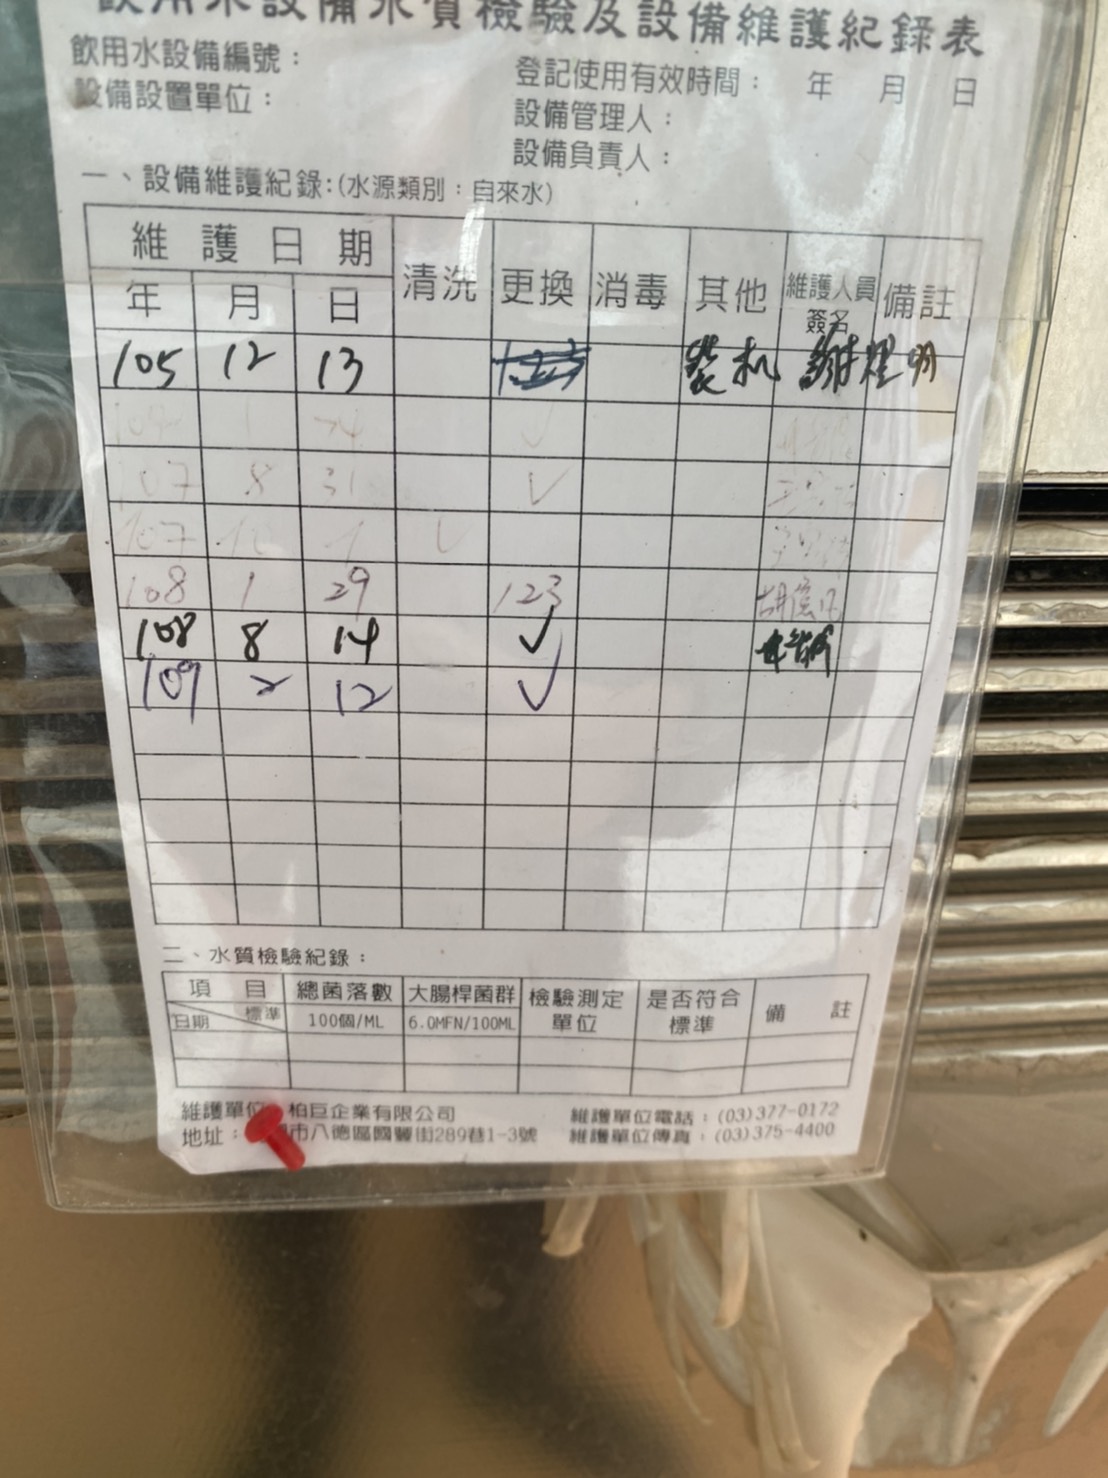 飲用水設備水質檢驗及設備維護紀錄表
飲用水設備編號：
登記使用有效時間： 年 月 日
設備設置單位：
設備管理人：
設備負責人：
一、設備維護紀錄:(水源類別：自來水)
維護日期 清洗 更換 消毒 其他 維護人員簽名 備註
年 月 日
105 12 13 裝机 謝煋明
1 24 ✓
107 8 31 ✓
107 10 1 ✓
108 1 29 123
108 8 14 ✓
109 2 12 ✓
二、水質檢驗紀錄：
項目 總菌落數 大腸桿菌群 檢驗測定單位 是否符合標準 備註
日期 標準 100個/ML 6.0MFN/100ML
維護單位 柏巨企業有限公司 維護單位電話：(03)377-0172
地址： 市八德區國豐街289巷1-3號 維護單位傳真：(03)375-4400